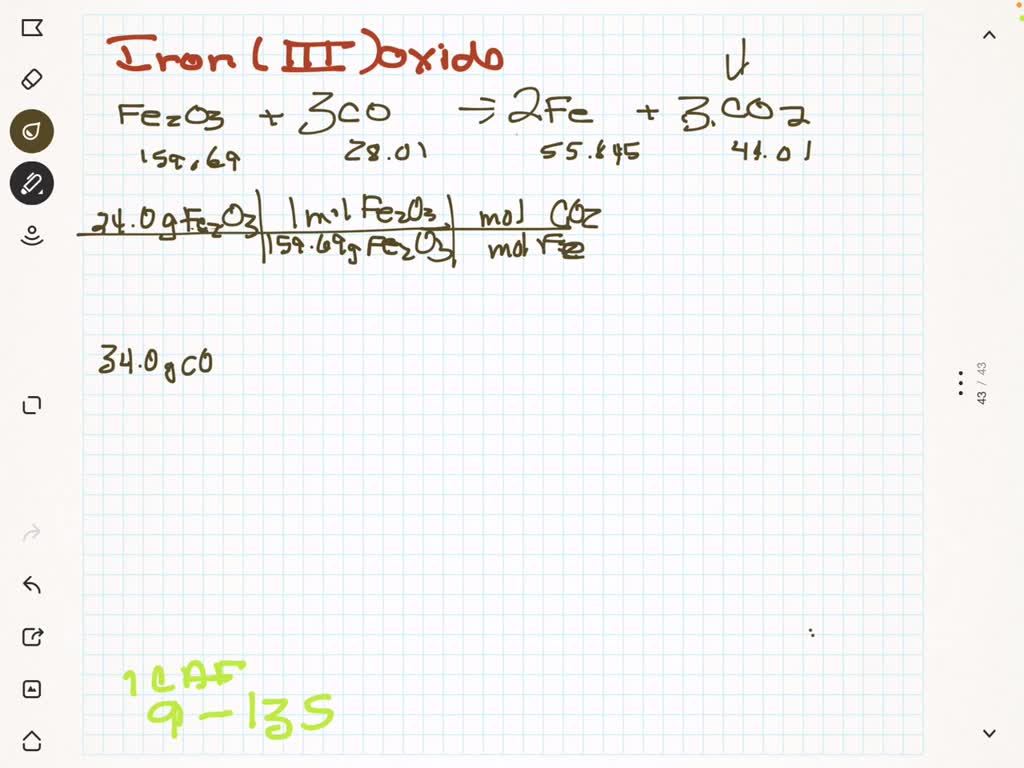 Iron (III) oxide
Fe2O3 + 3CO → 2Fe + 3.CO2
159.69 28.01 55.845 44.01
24.0 g Fe2O3 | 1 mol Fe2O3 | mol CO2
159.69 g Fe2O3 | mol Fe
34.0 g CO
9-135
43 / 43